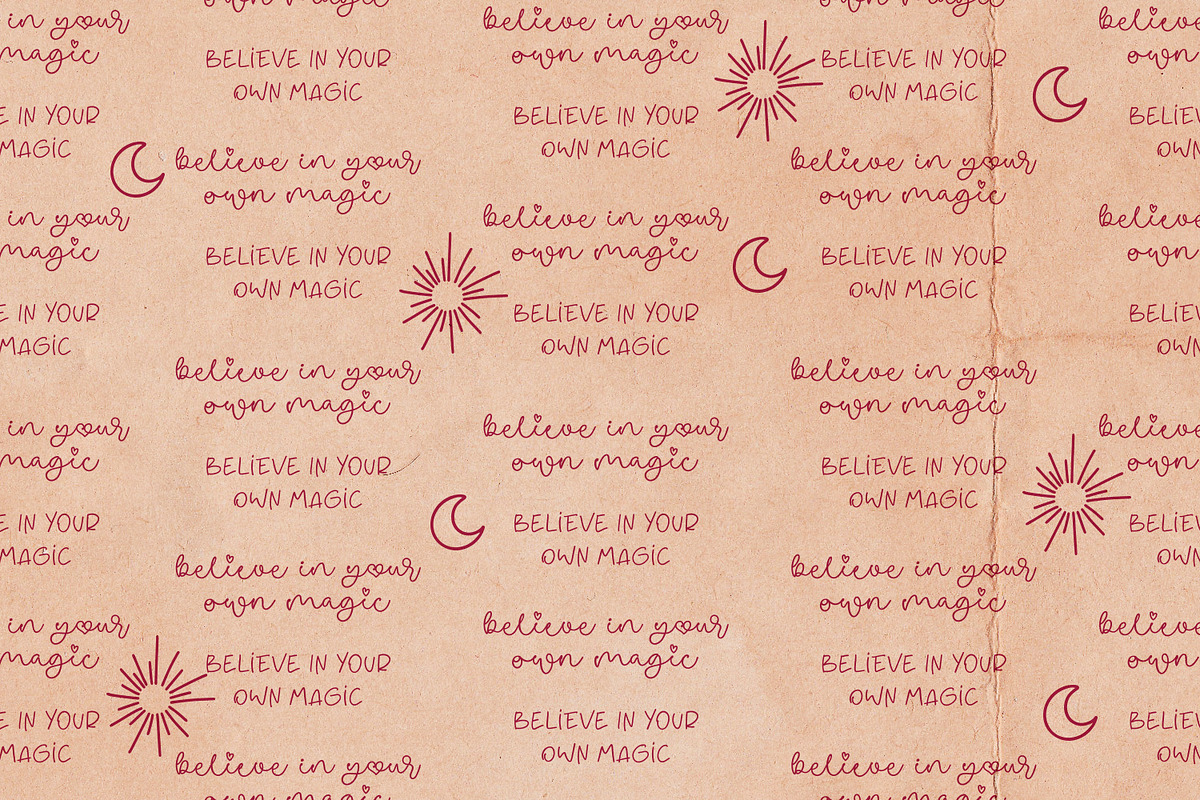 in your
magic
IN YOUR
MAGIC
in your
magic
IN YOUR
MAGIC
in your
magic
IN YOUR
MAGIC
in your
magic
IN YOUR
MAGIC
own magic
BELIEVE IN YOUR
OWN MAGIC
believe in your
own magic
BELIEVE IN YOUR
OWN MAGIC
believe in your
own magic
BELIEVE IN YOUR
OWN MAGIC
believe in your
own magic
BELIEVE IN YOUR
OWN MAGIC
believe in your
own magic
believe in your
own magic
BELIEVE IN YOUR
OWN MAGIC
believe in your
own magic
BELIEVE IN YOUR
OWN MAGIC
believe in your
own magic
BELIEVE IN YOUR
OWN MAGIC
believe in your
own magic
BELIEVE IN YOUR
OWN MAGIC
own magic
BELIEVE IN YOUR
OWN MAGIC
believe in your
own magic
BELIEVE IN YOUR
OWN MAGIC
believe in your
own magic
BELIEVE IN YOUR
OWN MAGIC
believe in your
own magic
BELIEVE IN YOUR
OWN MAGIC
believe in your
own magic
believe
own
BELIEV
OW
believe
own
BELIEV
OW
believe
own
BELIEV
OW
believe
own
BELIEV
OW